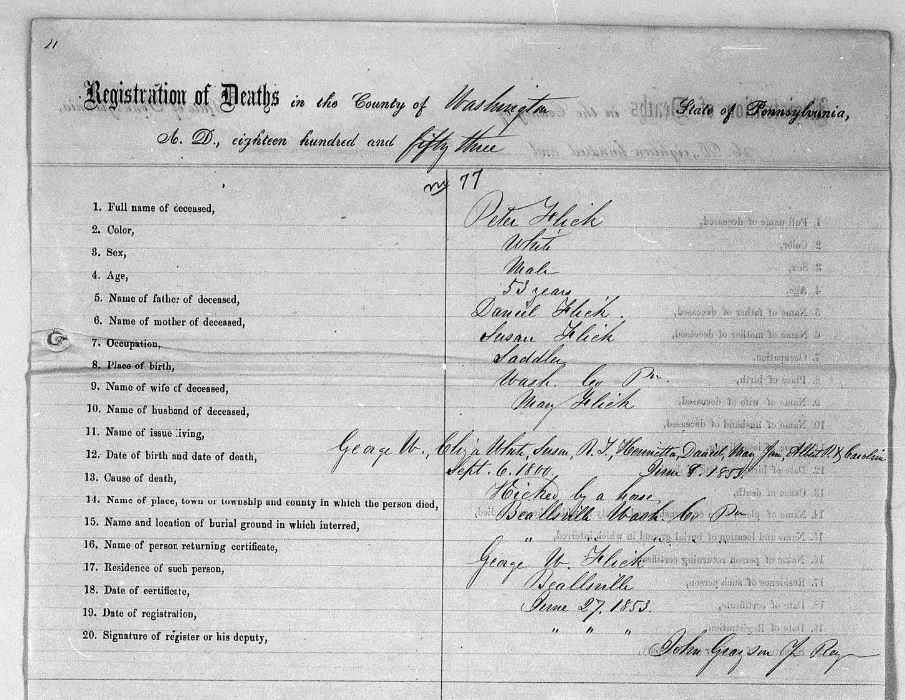 21
Registration of Deaths in the County of Washington State of Pennsylvania,
A. D., eighteen hundred and fifty three
No 77
1. Full name of deceased, Peter Flick
2. Color, White
3. Sex, Male
4. Age, 53 years
5. Name of father of deceased, Daniel Flick.
6. Name of mother of deceased, Susan Flick
7. Occupation, Saddler
8. Place of birth, Wash. Co Pa.
9. Name of wife of deceased, Mary Flick
10. Name of husband of deceased,
11. Name of issue living, George W., Eliza White, Susan, R. T., Henrietta, Daniel, Mary Jane, Albert & Caroline
12. Date of birth and date of death, Sept. 6. 1800. June 8. 1853.
13. Cause of death, Kicked by a horse
14. Name of place, town or township and county in which the person died, Beallsville Wash. Co Pa
15. Name and location of burial ground in which interred, " " "
16. Name of person returning certificate, George W. Flick
17. Residence of such person, Beallsville
18. Date of certificate, June 27. 1853.
19. Date of registration, " " "
20. Signature of register or his deputy, John Grayson Jr Reg